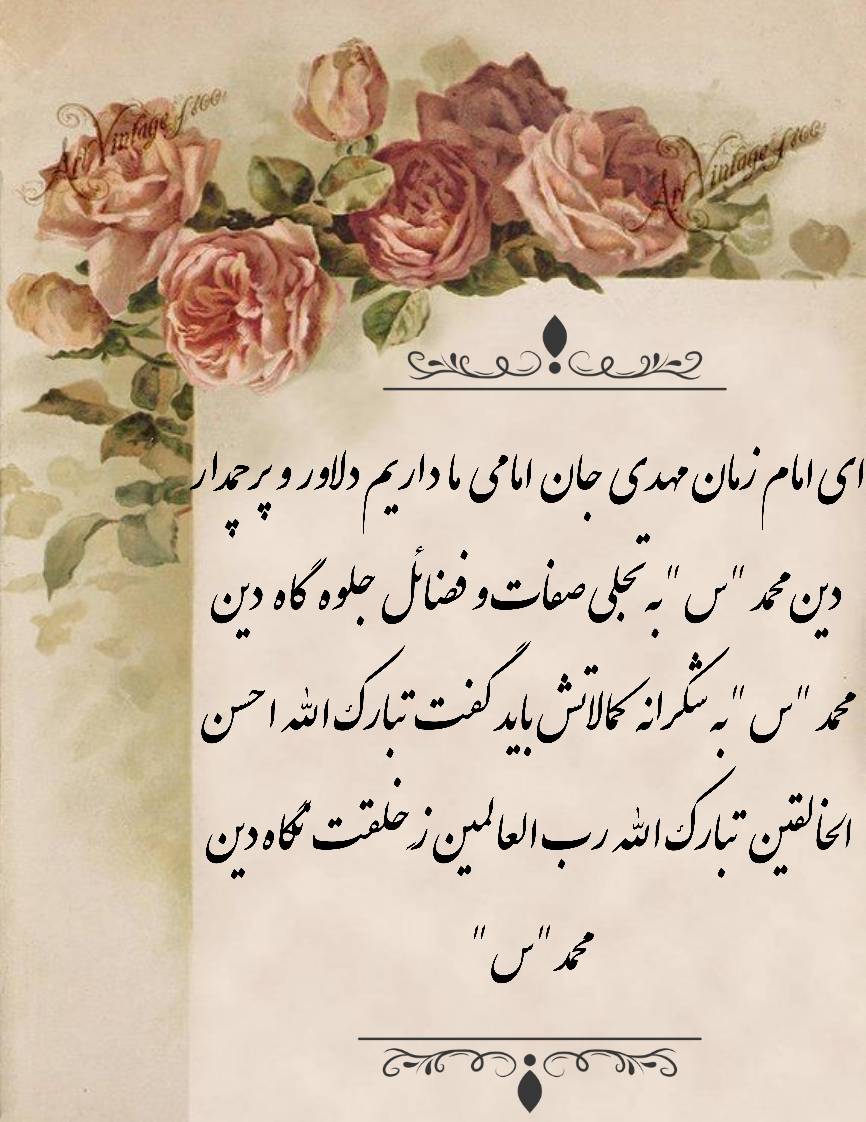 Art Vintage 1400
Art Vintage 1400
ای امام زمان مهدی جان امامی ما داریم دلاور و پرچمدار
دین محمد "س" به تجلی صفات و فضائل جلوه گاه دین
محمد "س" به شکرانه کمالاتش باید گفت تبارک الله احسن
الخالقین تبارک الله رب العالمین ز خلقت نگاه دین
محمد "س"